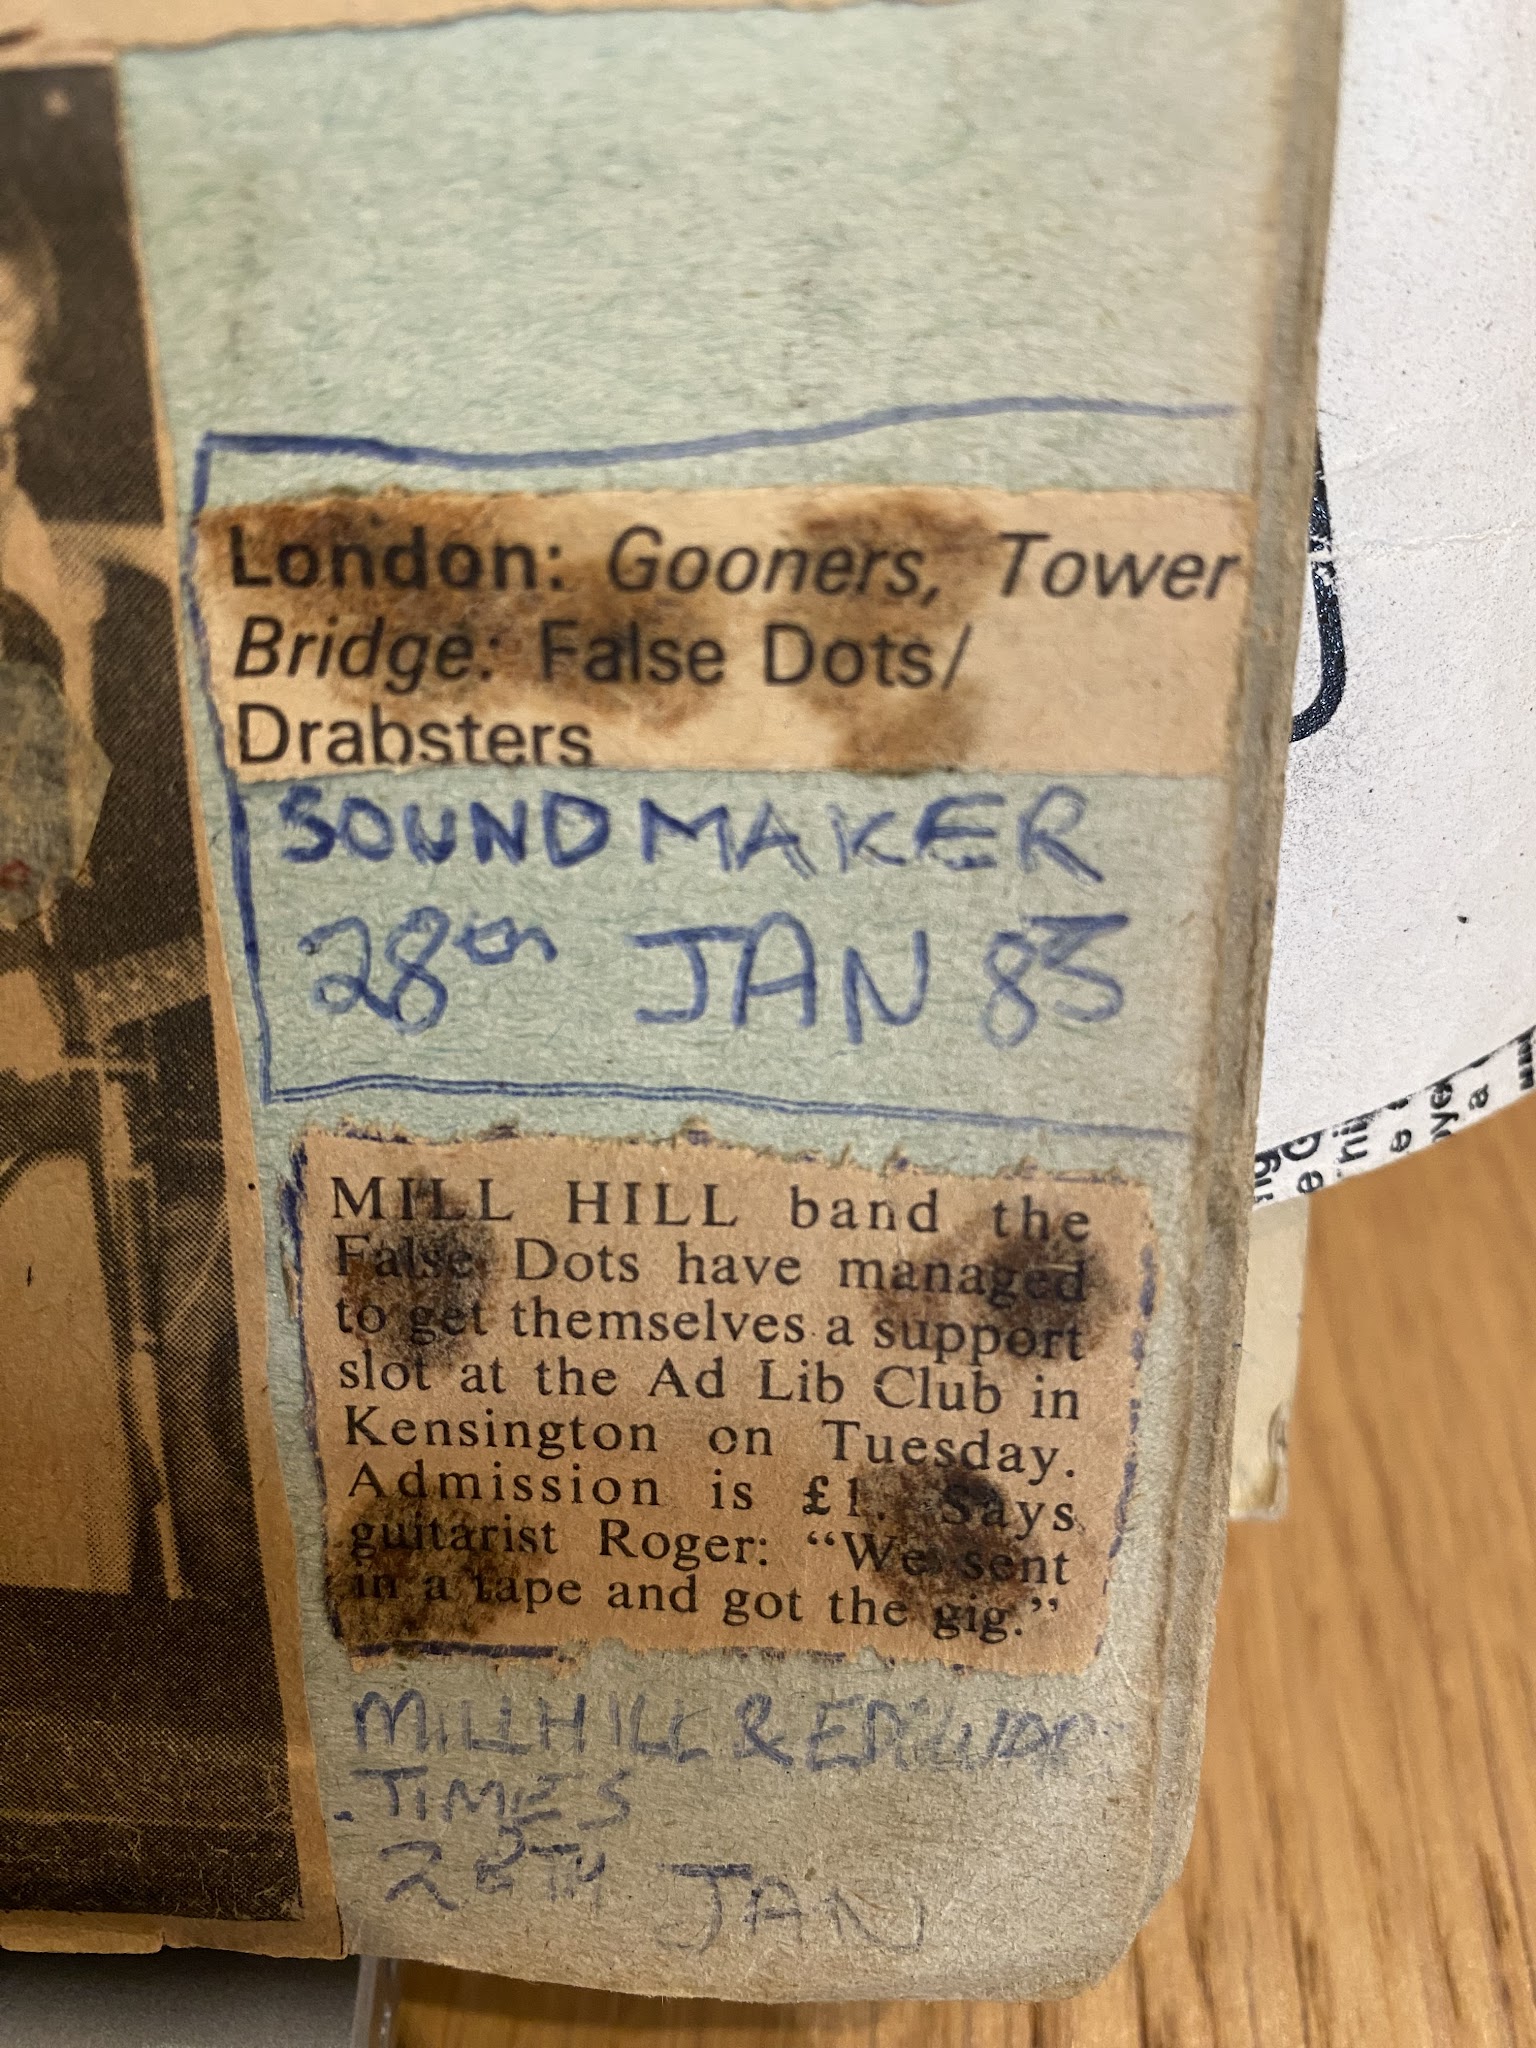 London: Gooners, Tower
Bridge: False Dots/
Drabsters
SOUNDMAKER
28th JAN 83
MILL HILL band the
False Dots have managed
to get themselves a support
slot at the Ad Lib Club in
Kensington on Tuesday.
Admission is £1. Says
guitarist Roger: “We sent
in a tape and got the gig.”
MILL HILL &
TIMES
28TH JAN